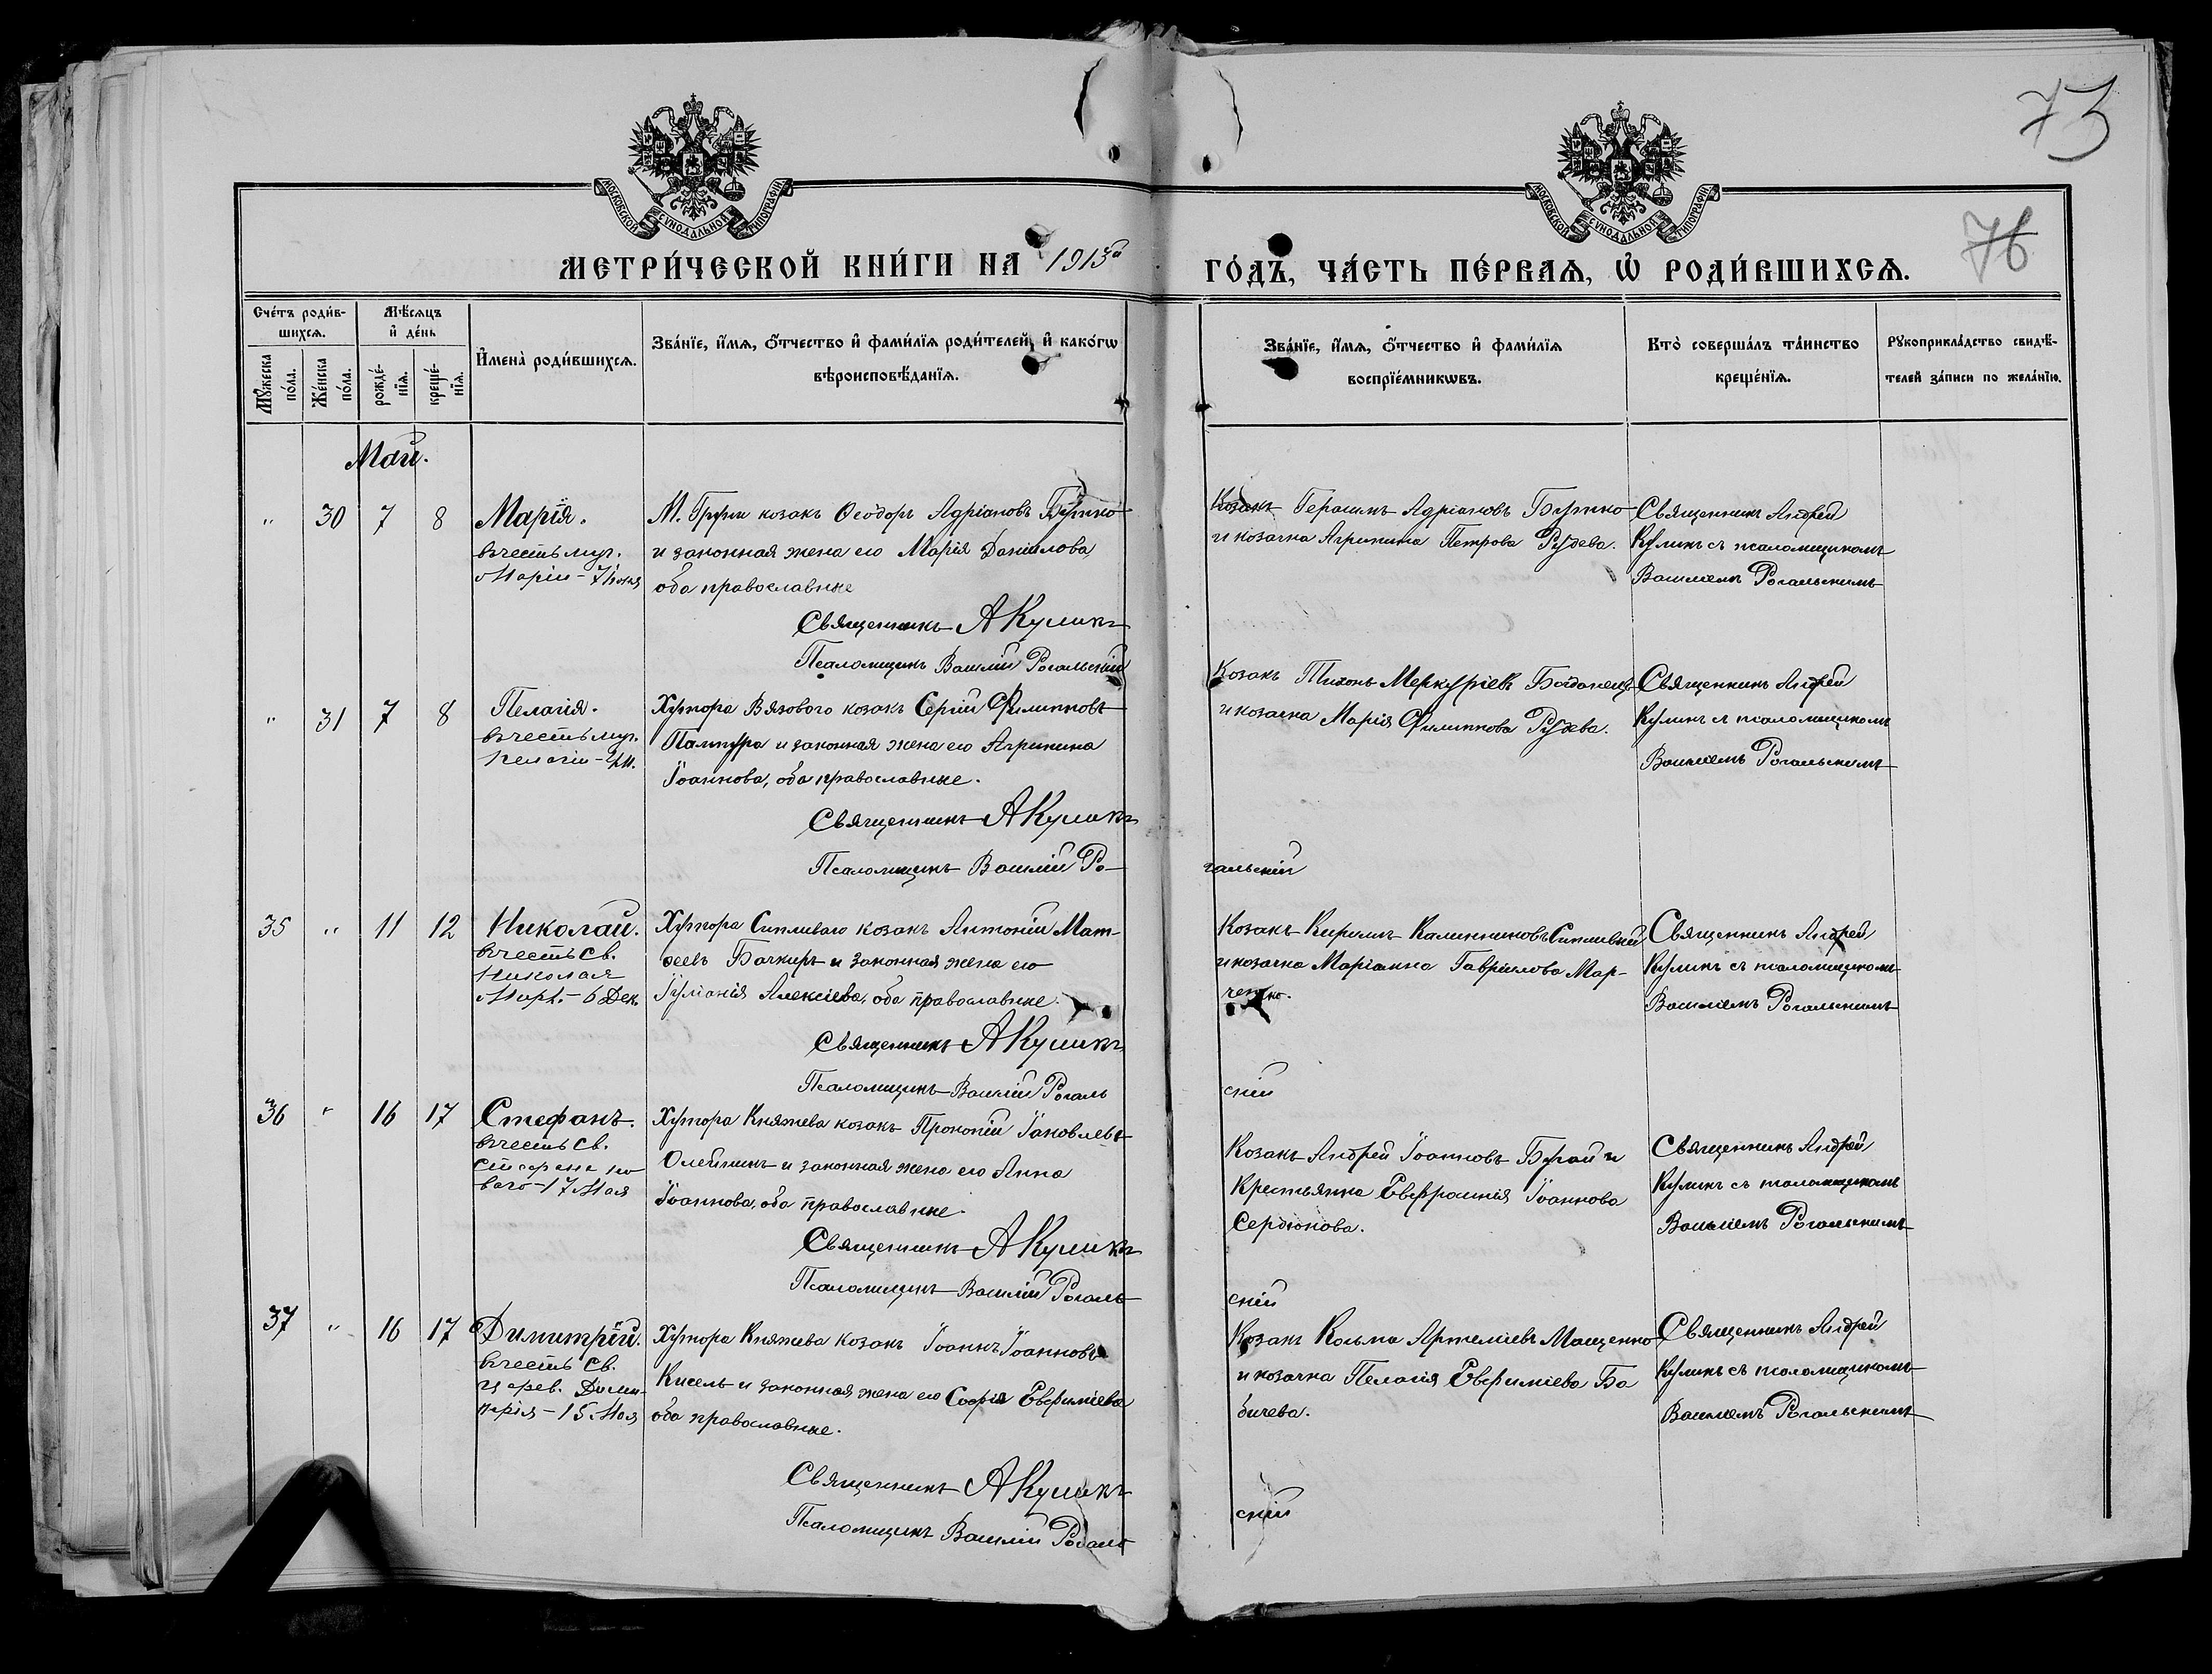 73
76
МОСКОВСКОЙ СѴНОДАЛЬНОЙ ТИПОГРАФІИ
МОСКОВСКОЙ СѴНОДАЛЬНОЙ ТИПОГРАФІИ
МЕТРИ́ЧЕСКОЙ КНИ́ГИ НА 1913й ГО́ДЪ, ЧА́СТЬ ПЕ́РВАѦ, Ѡ РОДИ́ВШИХСѦ.
Сче́тъ роди́в-
шихсѧ.
Мꙋ́жеска по́ла.
Же́нска по́ла.
Мѣ́сѧцъ
и҆ де́нь
рожде́-
нїѧ.
креще́-
нїѧ.
И҆мена̀ роди́вшихсѧ.
Зва́нїе, и҆́мѧ, ѻ҆́тчество и҆ фами́лїѧ роди́телей, и҆ како́гѡ
вѣроисповѣ́данїѧ.
Зва́нїе, и҆́мѧ, ѻ҆́тчество и҆ фами́лїѧ
воспрїе́мникѡвъ.
Кто̀ соверша́лъ та́инство
креще́нїѧ.
Рꙋкоприкла́дство свидѣ́-
телей за́писи по жела́нїю.
Май.
" 30 7 8
Марія.
въ честь муч.
Маріи - 7 Іюня
М. Груни козакъ Ѳеодоръ Адріановъ Бутко
и законная жена его Марія Даніилова,
оба православные
Священникъ А Куликъ
Псаломщикъ Василій Рогальскій
Козакъ Герасимъ Адріановъ Бутко
и козачка Агрипина Петрова Рудева.
Священникъ Андрей
Куликъ съ псаломщикомъ
Василіемъ Рогальскимъ
" 31 7 8
Пелагія.
въ честь муч.
Пелагіи -
Хутора Вязового козакъ Сергій Филипповъ
Пампура и законная жена его Агрипина
Іоаннова, оба православные.
Священникъ А Куликъ
Псаломщикъ Василій Ро-
гальскій
Козакъ Тихонъ Меркуріевъ Богданецъ
и козачка Марія Филиппова Рудева.
Священникъ Андрей
Куликъ съ псаломщикомъ
Василіемъ Рогальскимъ
35 " 11 12
Николай.
въ честь Св.
Николая
Мирл. - 6 Дек.
Хутора Сипливаго козакъ Антоній Мат-
ѳеевъ Бачкиръ и законная жена его
Іуліанія Алексіева, оба православные.
Священникъ А Куликъ
Псаломщикъ Василій Рогаль
скій
Козакъ Кириллъ Калинниковъ Сипливый
и козачка Маріанна Гавріилова Мар-
ченко.
Священникъ Андрей
Куликъ съ псаломщикомъ
Василіемъ Рогальскимъ
36 " 16 17
Стефанъ.
въ честь Св.
Стефана но
ваго - 17 Мая
Хутора Княжева козакъ Прокопій Іаковлевъ
Олейникъ и законная жена его Анна
Іоаннова, оба православные.
Священникъ А Куликъ
Псаломщикъ Василій Рогаль
скій
Козакъ Андрей Іоанновъ Бугай и
Крестьянка Евфросинія Іоаннова
Сердюкова.
Священникъ Андрей
Куликъ съ псаломщикомъ
Василіемъ Рогальскимъ
37 " 16 17
Димитрій.
въ честь Св.
царев. Дими-
трія - 15 Мая
Хутора Княжева козакъ Іоаннъ Іоанновъ
Кисель и законная жена его Софія Евфиміева
оба православные.
Священникъ А Куликъ
Псаломщикъ Василій Рогаль
скій
Козакъ Косьма Артеміевъ Мащенко
и козачка Пелагія Евфиміева Ба
бичева.
Священникъ Андрей
Куликъ съ псаломщикомъ
Василіемъ Рогальскимъ